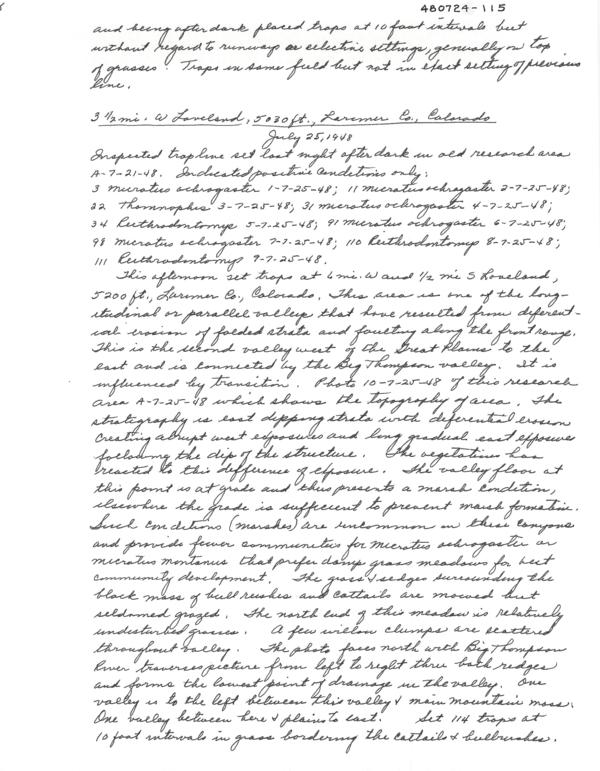 480724-115
and being after dark placed traps at 10 foot intervals but
without regard to runways or selective settings, generally on top
of grasses. Traps in same field but not in exact setting of previous
line.
3 1/2 mi. W Loveland, 5030 ft., Larimer Co., Colorado
July 25, 1948
Inspected trapline set last night after dark in old research area
A-7-21-48. Indicated positive conditions only:
3 Microtus ochrogaster 1-7-25-48; 11 Microtus ochrogaster 2-7-25-48;
22 Thamnophis 3-7-25-48; 31 Microtus ochrogaster 4-7-25-48;
34 Reithrodontomys 5-7-25-48; 91 Microtus ochrogaster 6-7-25-48;
98 Microtus ochrogaster 7-7-25-48; 110 Reithrodontomys 8-7-25-48;
111 Reithrodontomys 9-7-25-48.
This afternoon set traps at 6 mi. W and 1/2 mi S Loveland,
5200 ft., Larimer Co., Colorado. This area is one of the long-
itudinal or parallel valleys that have resulted from deferent-
ial erosion of folded strata and faulting along the front range.
This is the second valley west of the Great Plains to the
east and is connected by the Big Thompson valley. It is
influenced by transition. Photo 10-7-25-48 of this research
area A-7-25-48 which shows the topography of area. The
stratigraphy is east dipping strata with deferential erosion
creating abrupt west exposures and long gradual east exposures
following the dip of the structure. The vegetation has
reacted to this difference of exposure. The valley floor at
this point is at grade and thus presents a marsh condition,
elsewhere the grade is sufficient to prevent marsh formation.
Such conditions (marshes) are uncommon in these canyons
and provide fewer communities for Microtus ochrogaster or
microtus montanus that prefer damp grass meadows for best
community development. The grass & sedges surrounding the
block mass of bull rushes and cattails are mowed but
seldomed grazed. The north end of this meadow is relatively
undisturbed grasses. A few willow clumps are scattered
throughout valley. The photo faces north with Big Thompson
River traverses picture from left to right thru both redges
and forms the lowest point of drainage in the valley. One
valley is to the left between this valley & main mountain mass.
One valley between here & plains to east. Set 114 traps at
10 foot intervals in grass bordering the cattails & bullrushes.